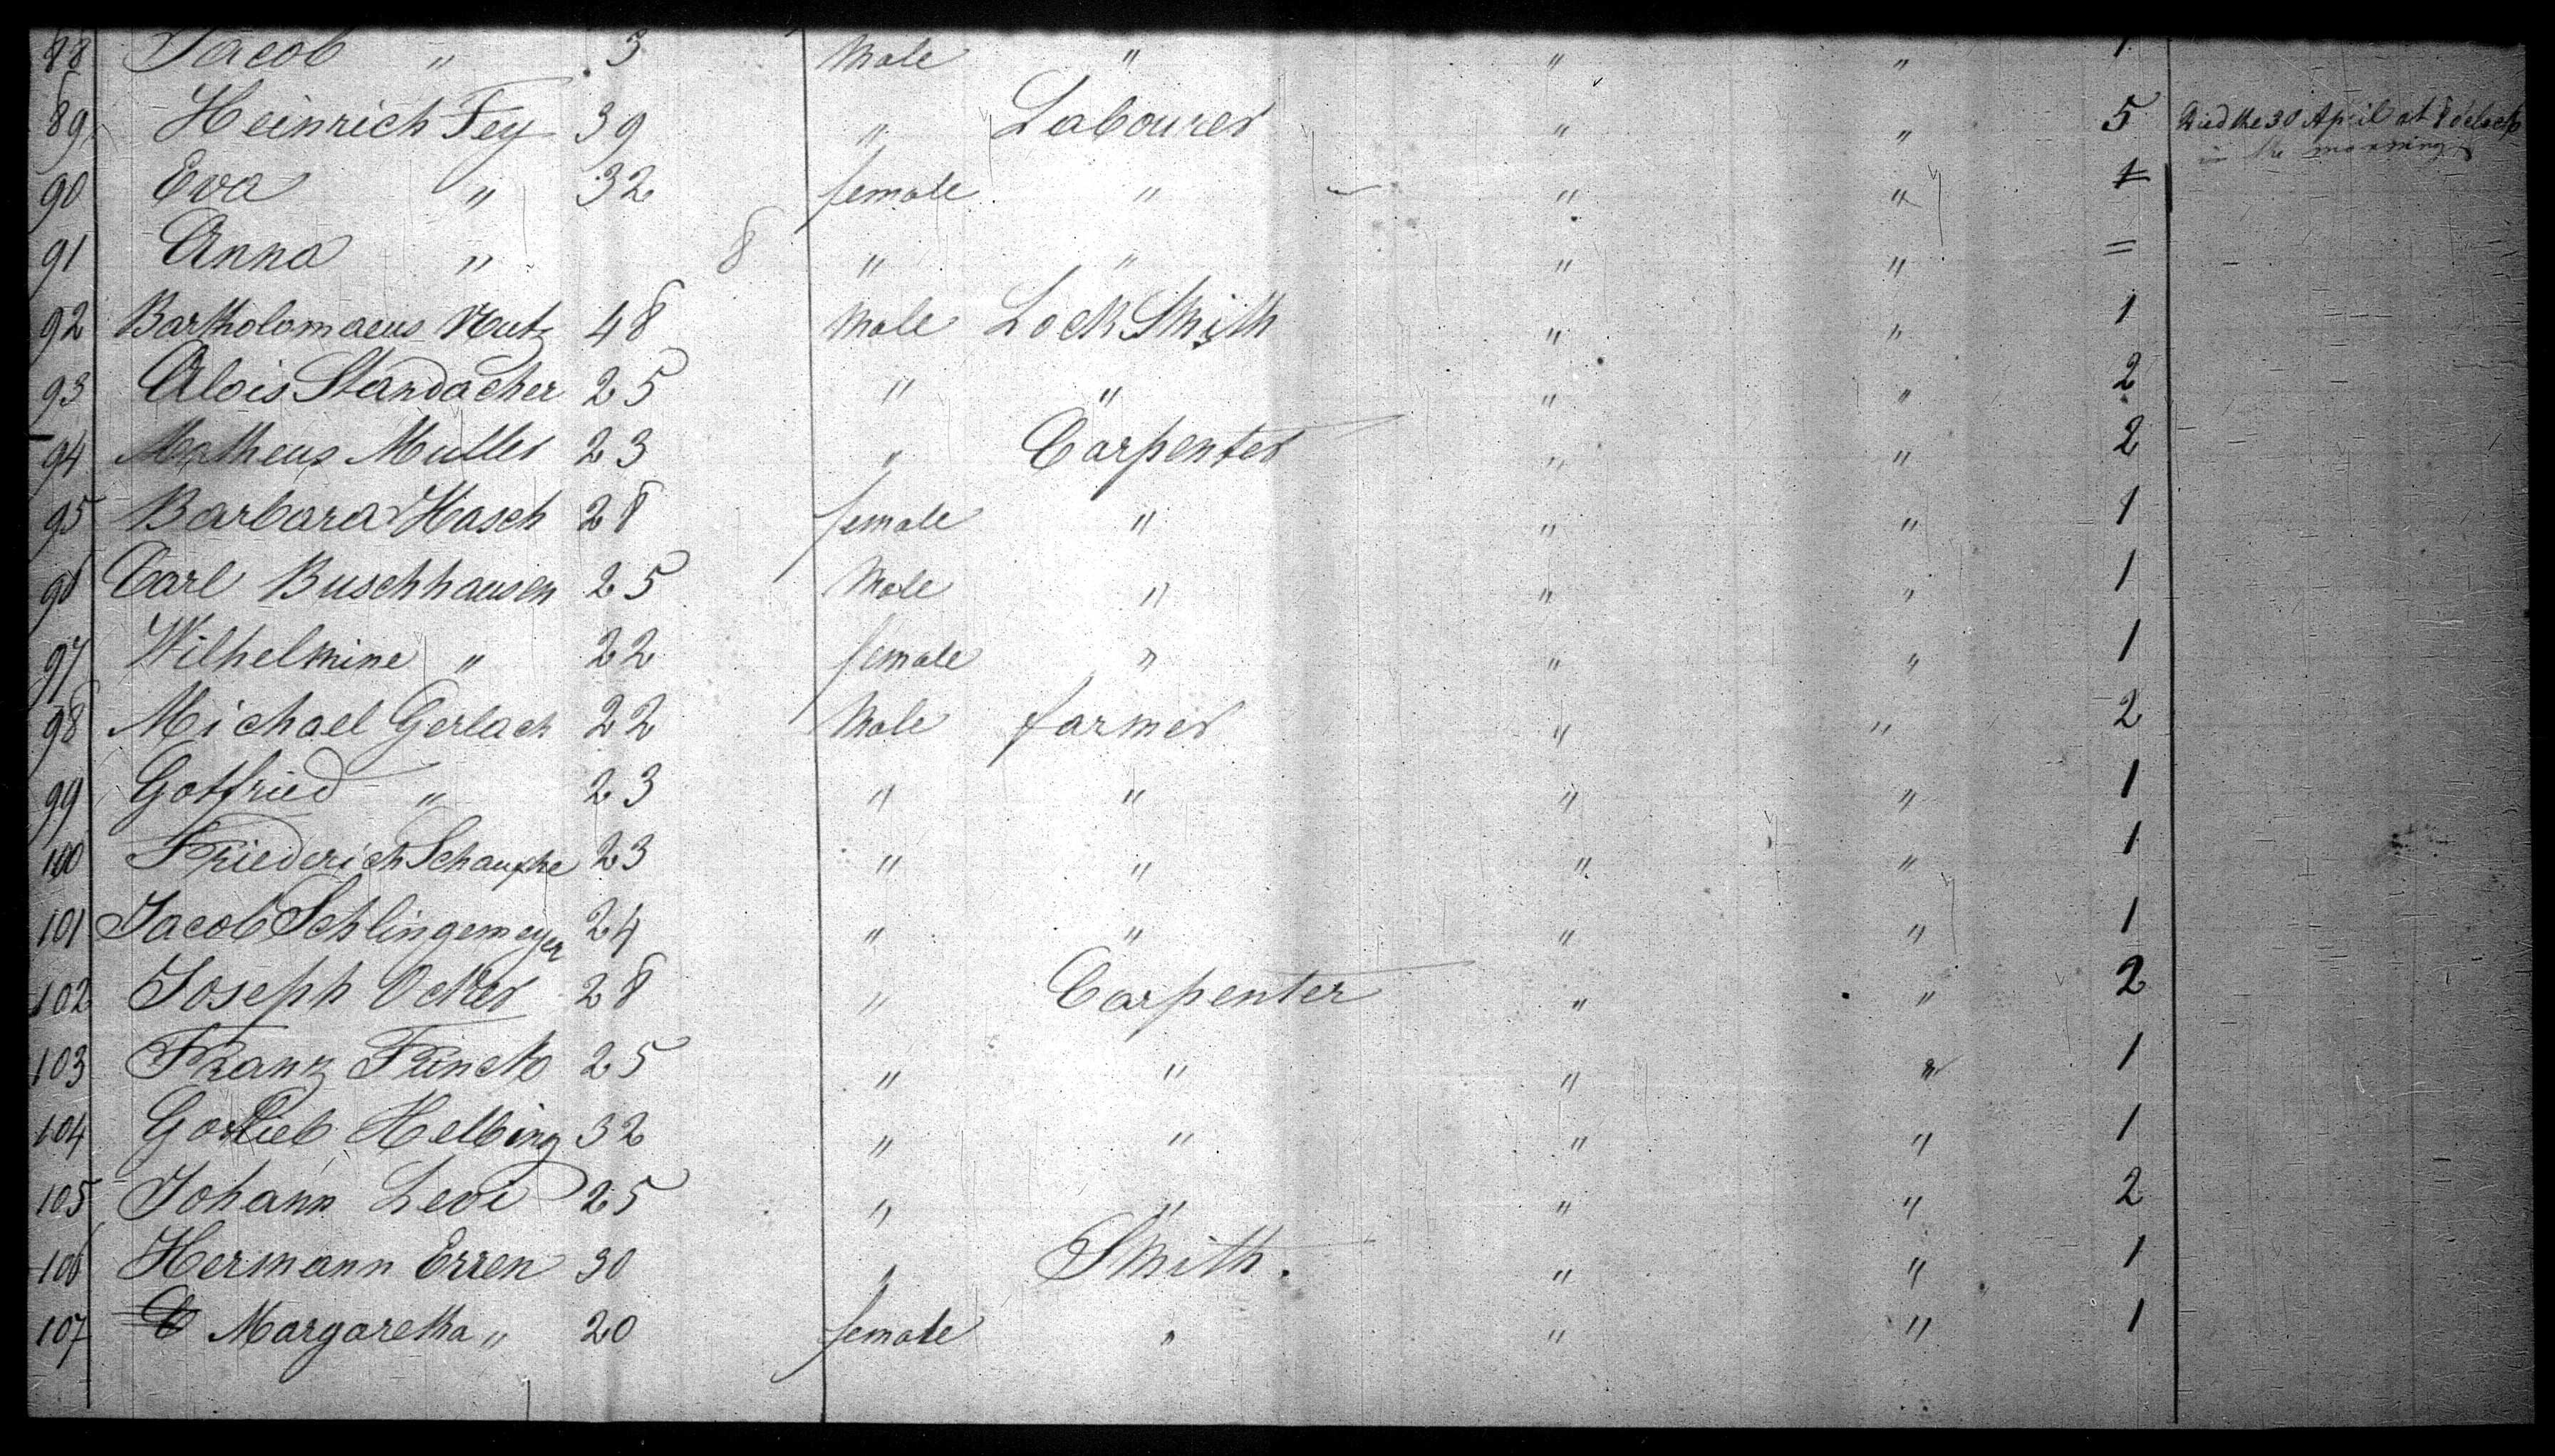 88 Jacob " 3 Male " " " 1
89 Heinrich Fey 39 " Labourer " " 5 Died the 30 April at 8 oclock
in the morning
90 Eva " 32 female " " " 1
91 Anna " 8 " " " " =
92 Bartholomaeus 48 Male Lock Smith " " 1
93 Alois Standacher 25 " " " " 2
94 Matheus Muller 23 " Carpenter " " 2
95 Barbara Hasch 28 female " " " 1
96 Carl Buschhausen 25 Male " " " 1
97 Wilhelmine " 22 female " " " 1
98 Michael Gerlach 22 Male farmer " " 2
99 Gotfried " 23 " " " " 1
100 Friederich 23 " " " " 1
101 Jacob Schlingemeyer 24 " " " " 1
102 Joseph Ocker 28 " Carpenter " " 2
103 Franz Finck 25 " " " " 1
104 Gottlieb Helbing 32 " " " " 1
105 Johann Levi 25 " " " " 2
106 Hermann Erren 30 " Smith. " " 1
107 Margaretha " 20 female " " " 1